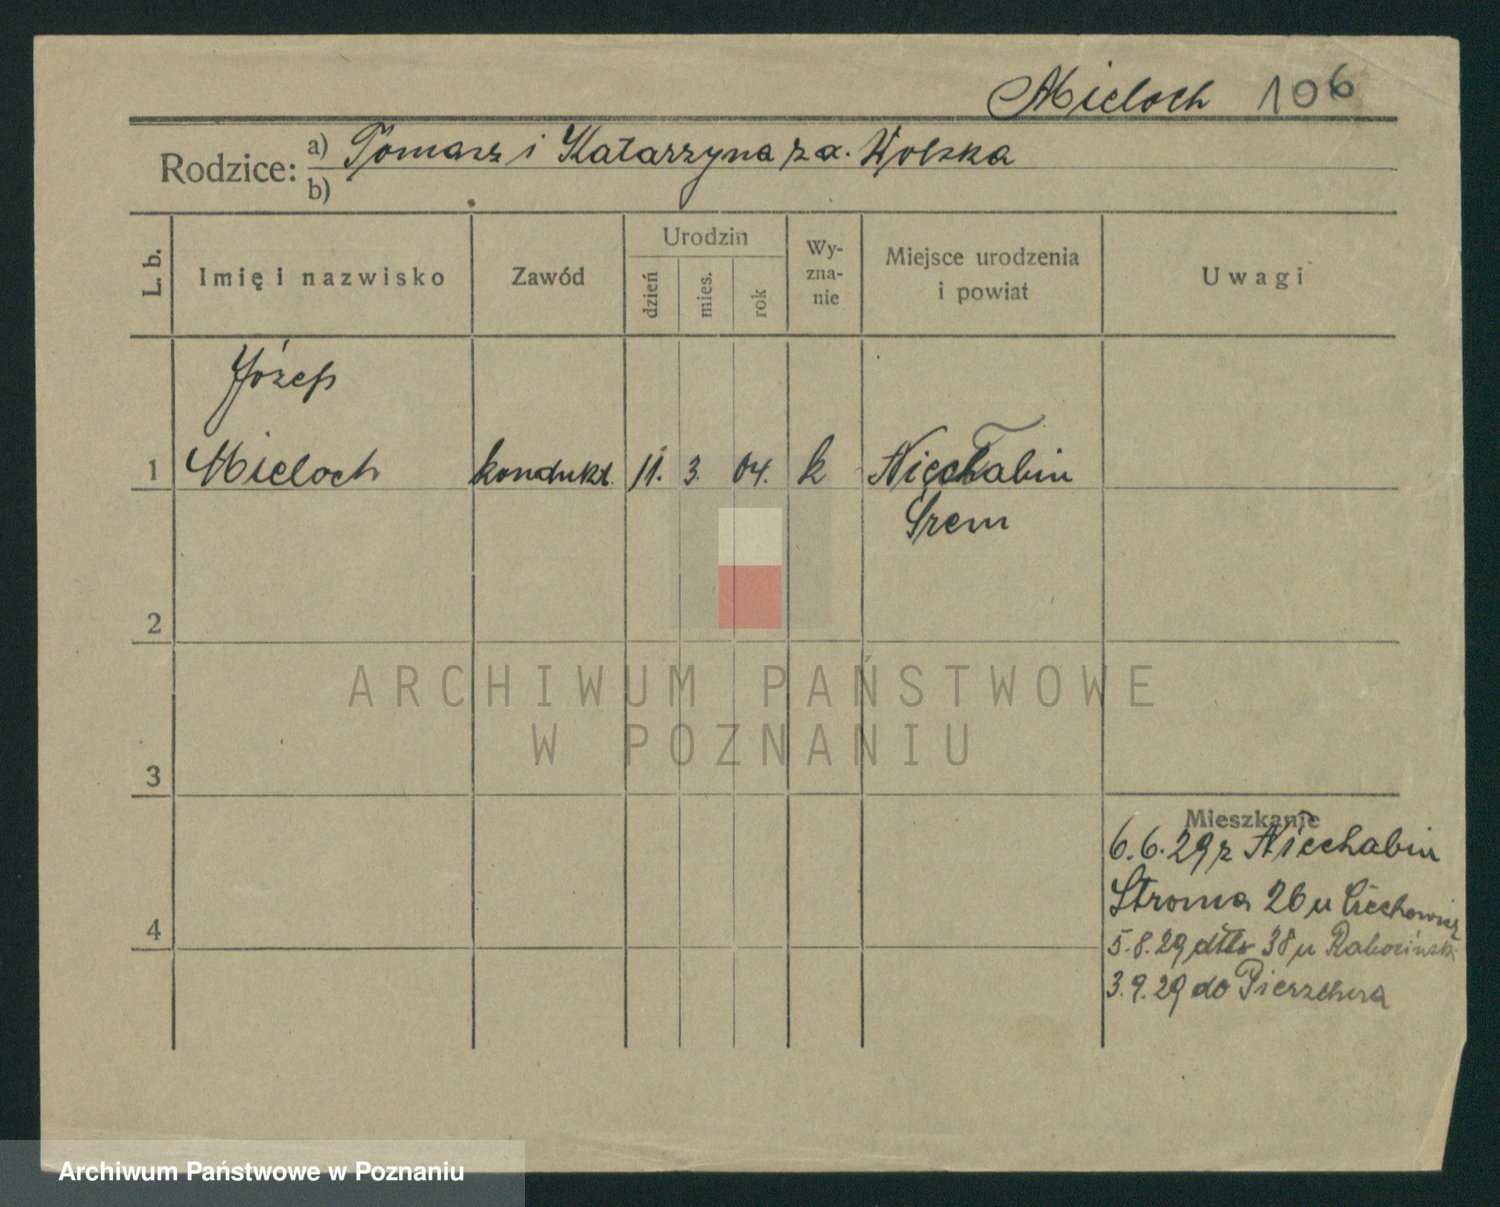 Mieloch 106
Rodzice: a) Tomasz i Katarzyna z d. Wolska
b)
L. b. Imię i nazwisko Zawód Urodzin dzień mies. rok Wy- zna- nie Miejsce urodzenia i powiat Uwagi
Józef
1 Mieloch kondukt. 11. 3. 04. k Niechabin
Śrem
2
ARCHIWUM PAŃSTWOWE
W POZNANIU
3
Mieszkanie
6.6.29 z Niechabin
Stroma 26 u Ciechowicz
4
5.8.29 38 u
3.9.29 do Pierzchna
Archiwum Państwowe w Poznaniu